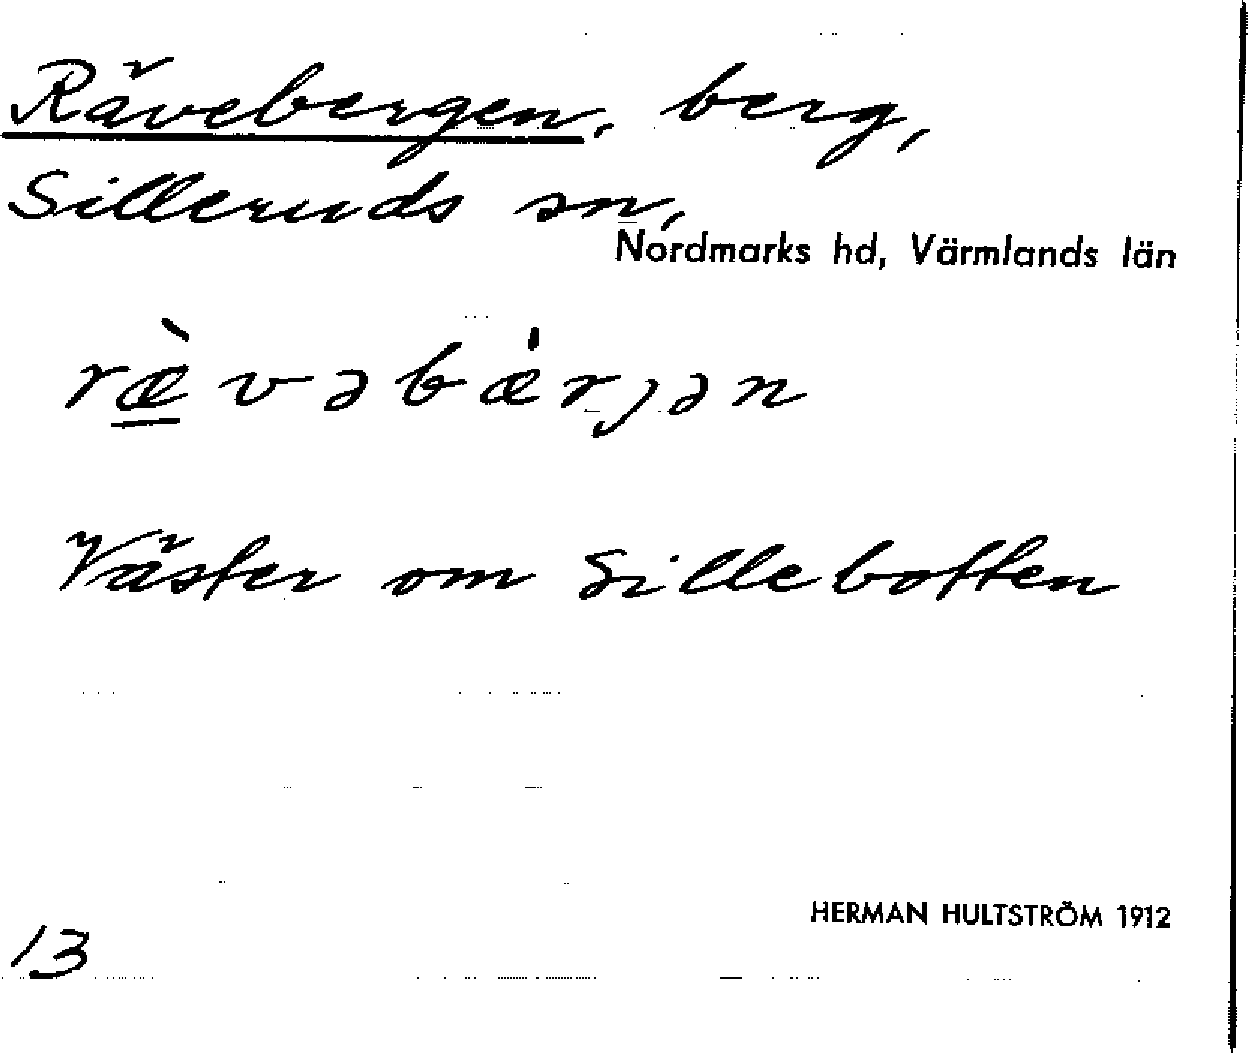 Rävebergen, berg,
Silleruds sn,
Nordmarks hd, Värmlands län
ræ̲̀vəbǽrjən
Väster om Sillebotten
HERMAN HULTSTRÖM 1912
13